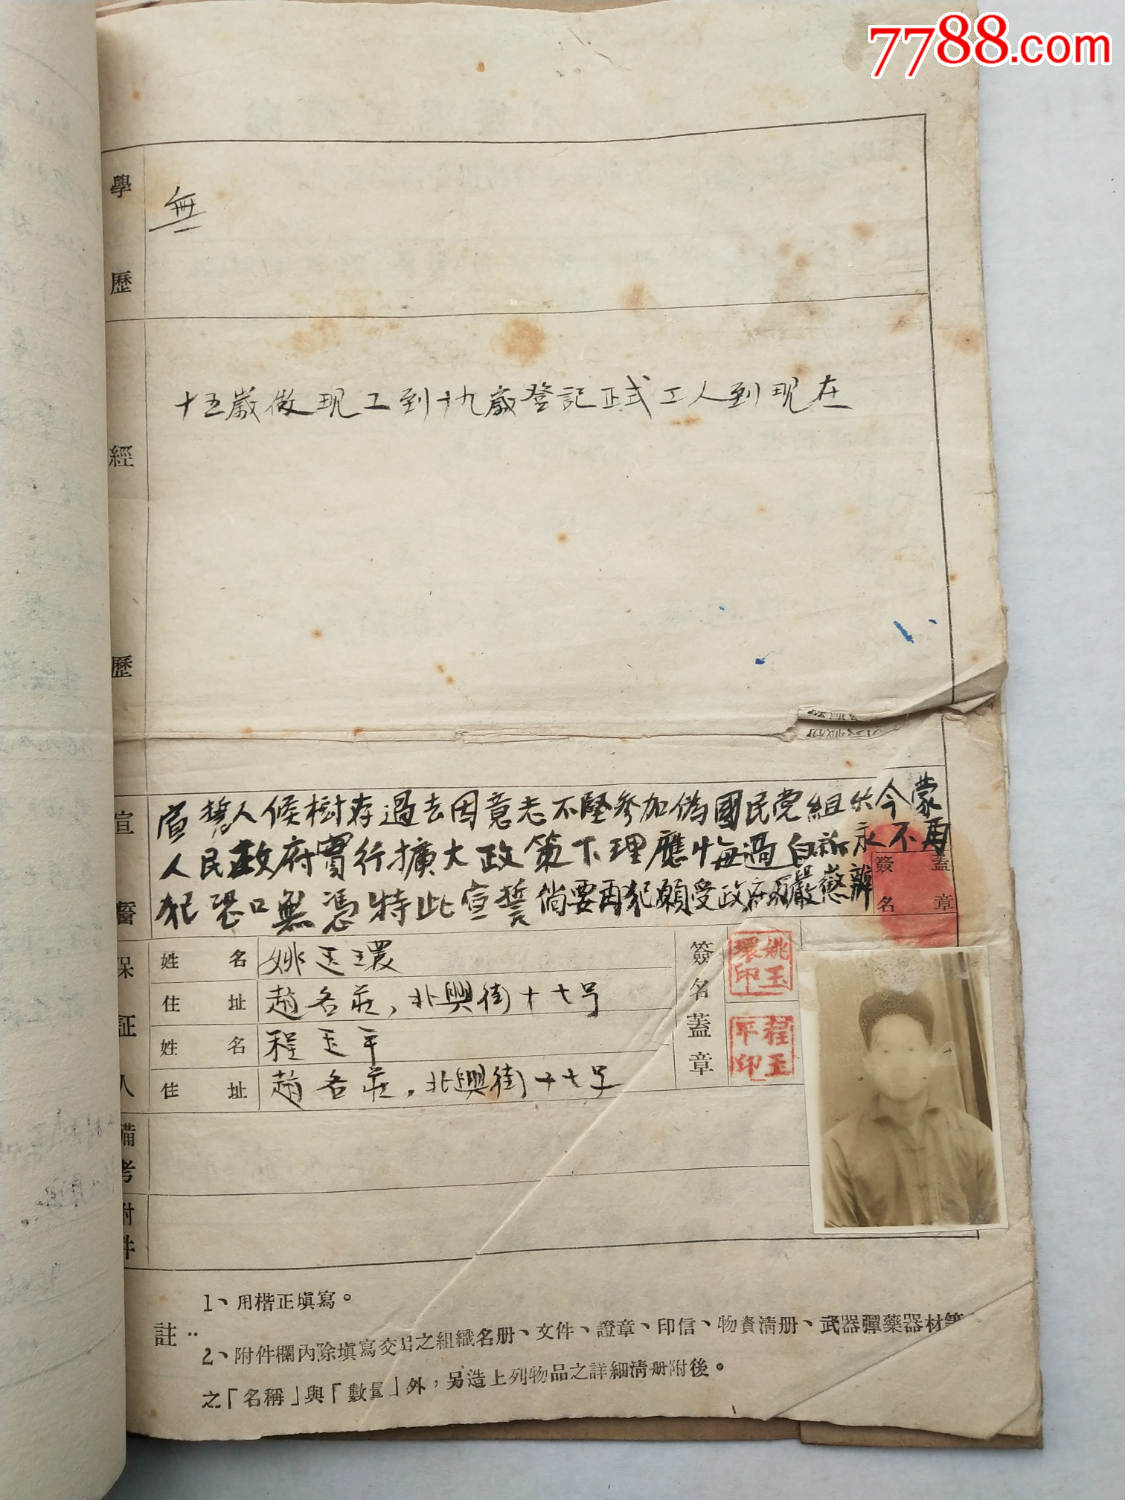 7788.com
學歷
無
經歷
十五嵗做现工到十九嵗登記正式工人到現在
宣誓
宣誓人候樹存過去因意志不堅参加偽國民党組织今蒙
人民政府實行擴大政策下理應悔過自新永不再
犯恐口無憑特此宣誓倘要再犯願受政府嚴懲辦
簽名 蓋章
保証人
姓名 姚玉環
住址 趙各庄,北興街十七号
姓名 程玉平
住址 趙各庄,北興街十七号
簽名蓋章
姚玉環印
程玉平印
備考
附件
註:
1、用楷正塡寫。
2、附件欄內除塡寫交出之組織名册、文件、證章、印信、物資淸册、武器彈藥器材等
之「名稱」與「數量」外,另造上列物品之詳細淸册附後。